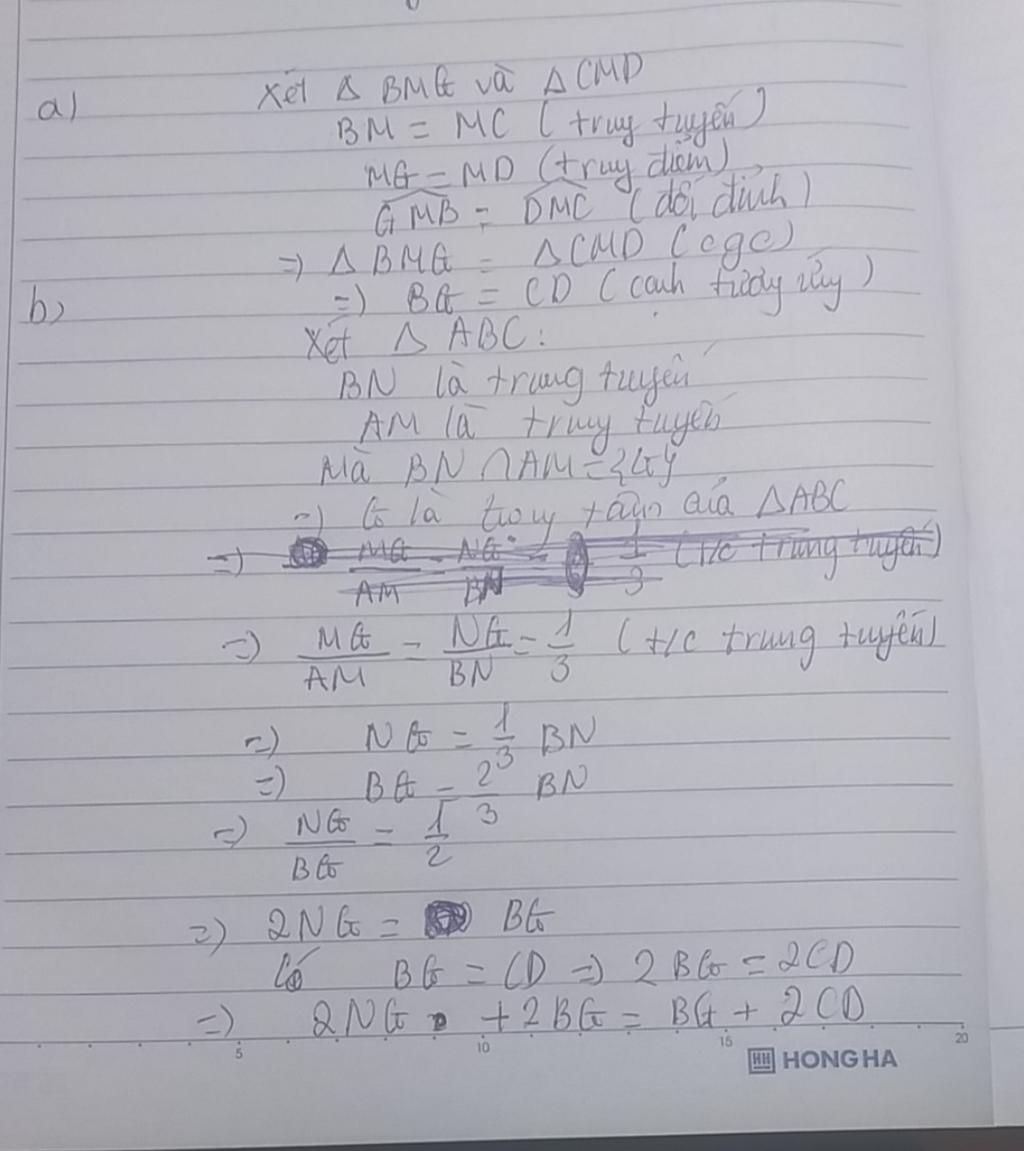 a) Xét Δ BMG và Δ CMD
BM = MC (trung tuyến)
MG = MD (trung điểm)
GMB = DMC (đối đỉnh)
=) Δ BMG = Δ CMD (cgc)
b) =) BG = CD (cạnh tương ứng)
Xét Δ ABC:
BN là trung tuyến
AM là trung tuyến
Mà BN ∩ AM = {G}
=) G là trọng tâm của ΔABC
=) MG/AM = NG/BN = 1/3 (t/c trung tuyến)
=) MG/AM = NG/BN = 1/3 (t/c trung tuyến)
=) NG = 1/3 BN
=) BG = 2/3 BN
=) NG/BG = 1/2
=) 2NG = BG
Có BG = CD =) 2BG = 2CD
=) 2NG + 2BG = BG + 2CD
5 10 15 20
HH HONG HA